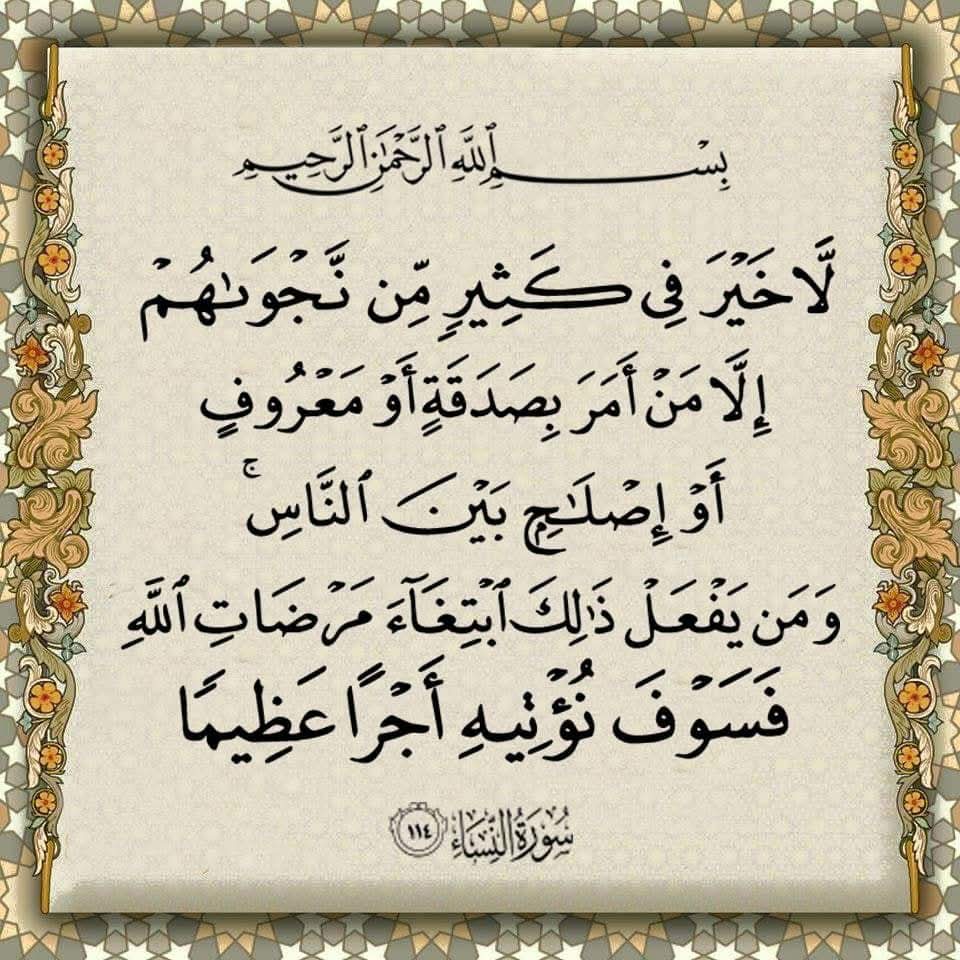 بِسْمِ ٱللَّهِ ٱلرَّحْمَٰنِ ٱلرَّحِيمِ
لَّا خَيْرَ فِى كَثِيرٍ مِّن نَّجْوَىٰهُمْ
إِلَّا مَنْ أَمَرَ بِصَدَقَةٍ أَوْ مَعْرُوفٍ
أَوْ إِصْلَٰحٍۭ بَيْنَ ٱلنَّاسِ ۚ
وَمَن يَفْعَلْ ذَٰلِكَ ٱبْتِغَآءَ مَرْضَاتِ ٱللَّهِ
فَسَوْفَ نُؤْتِيهِ أَجْرًا عَظِيمًا
سُورَةُ النِّسَاءِ ١١٤